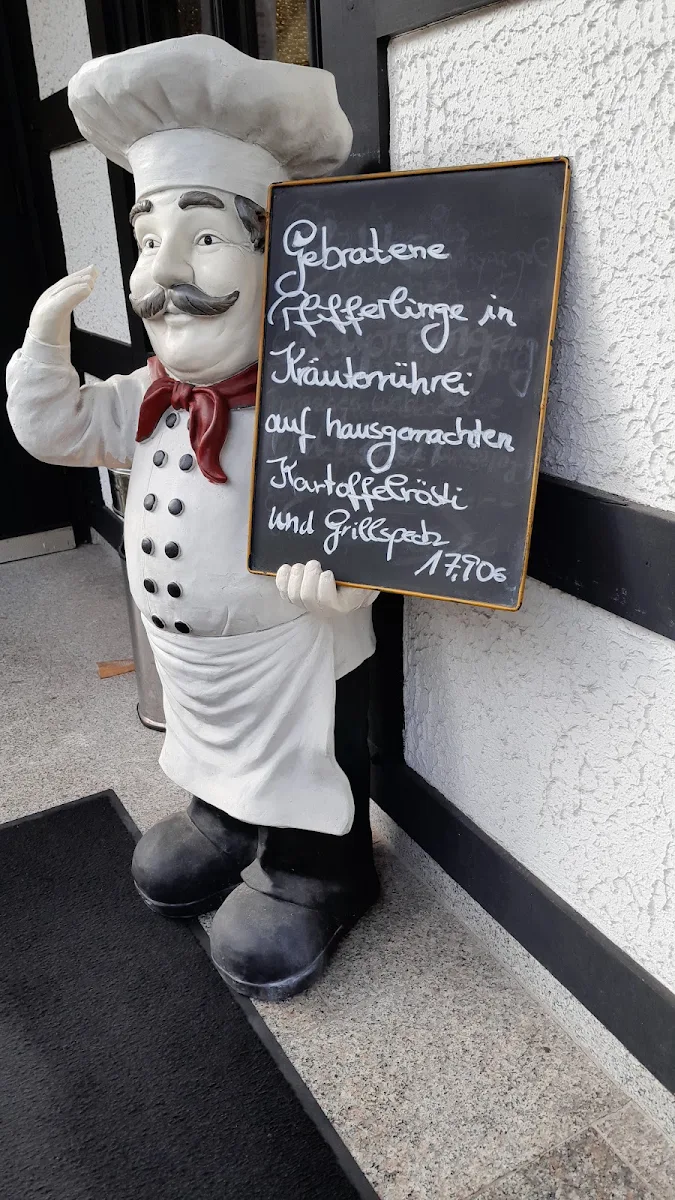 Gebratene
Pfifferlinge in
Kräuterrührei
auf hausgemachten
Kartoffelrösti
und Grillspeck
17,90€